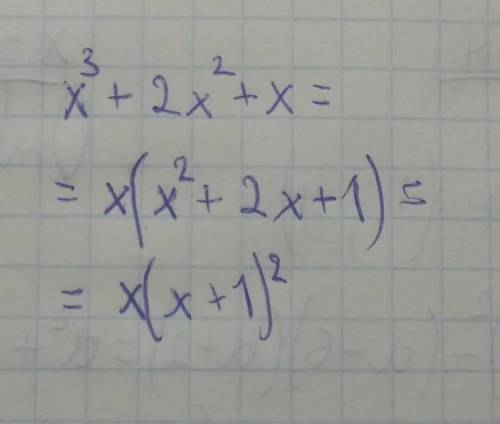 x³ + 2x² + x =
= x(x² + 2x + 1) =
= x(x + 1)²